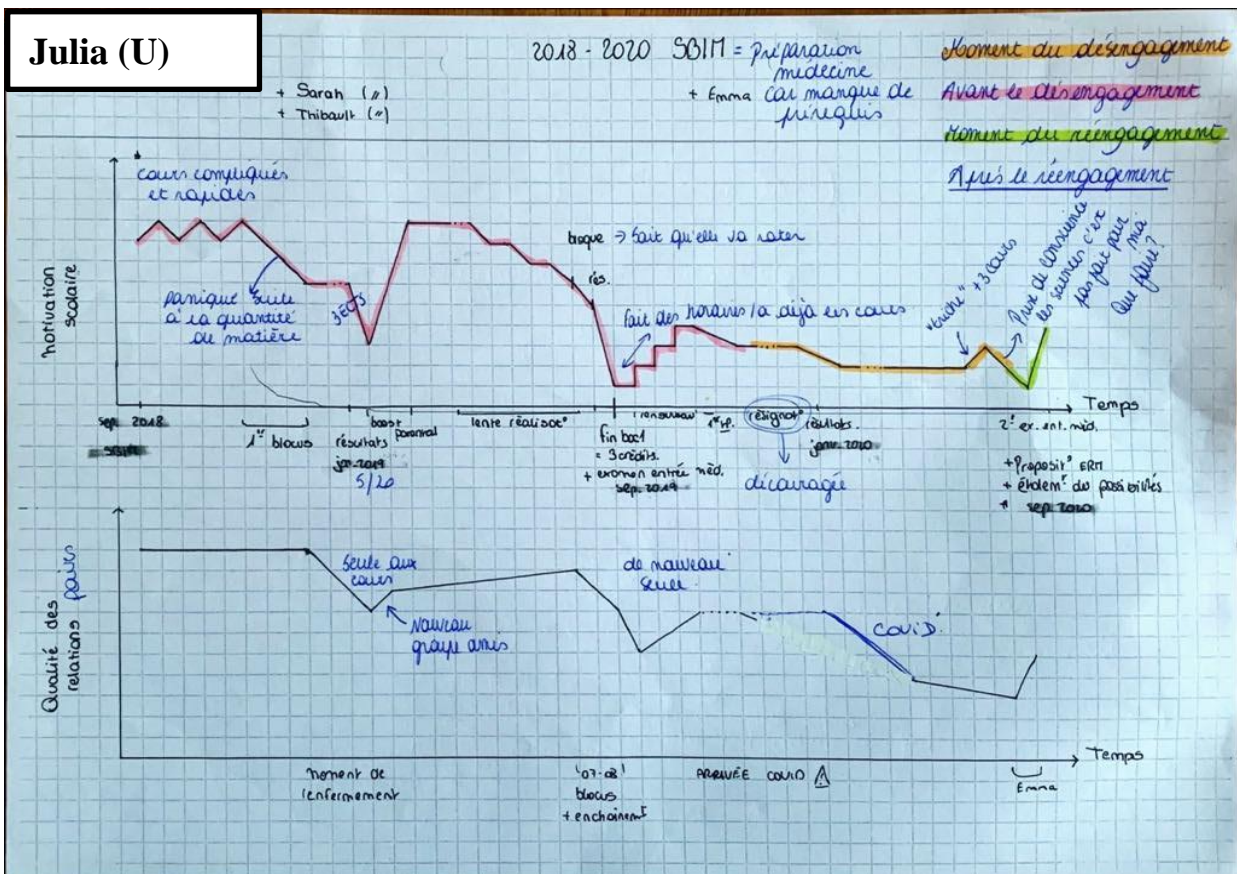 Julia (U)
2018 - 2020 SBIM = Préparation
médecine
car manque de
prérequis
+ Sarah (")
+ Thibault (")
+ Emma
Moment du désengagement
Avant le désengagement
Moment du réengagement
Après le réengagement
Motivation
scolaire
cours compliqués
et rapides
panique suite
à la quantité
de matière
3ECTS
bloque → sait qu'elle va rater
rés.
Fait des horaires / a déjà les cours
"triche" +3 cours
Prise de conscience
les sciences c'ex
pas fait pour
moi
Que faire?
Temps
sep. 2018
SBIM
1er blocus
résultats
jan. 2019
5/20
boost
parental
lente réalisat°
fin bac1
= 3 crédits.
+ examen entrée méd.
sep. 2019
renouveau
résignat°
découragée
résultats.
janv. 2020
2e ex. ent. méd.
+ Proposit° ERM
+ étalemt des possibilités
sep. 2020
Qualité des
relations paires
seule aux
cours
Nouveau
groupe amis
de nouveau
seule
COVID
Temps
moment de
l'enfermement
'07-08'
blocus
+ enchainemt
ARRIVÉE COVID
Emma